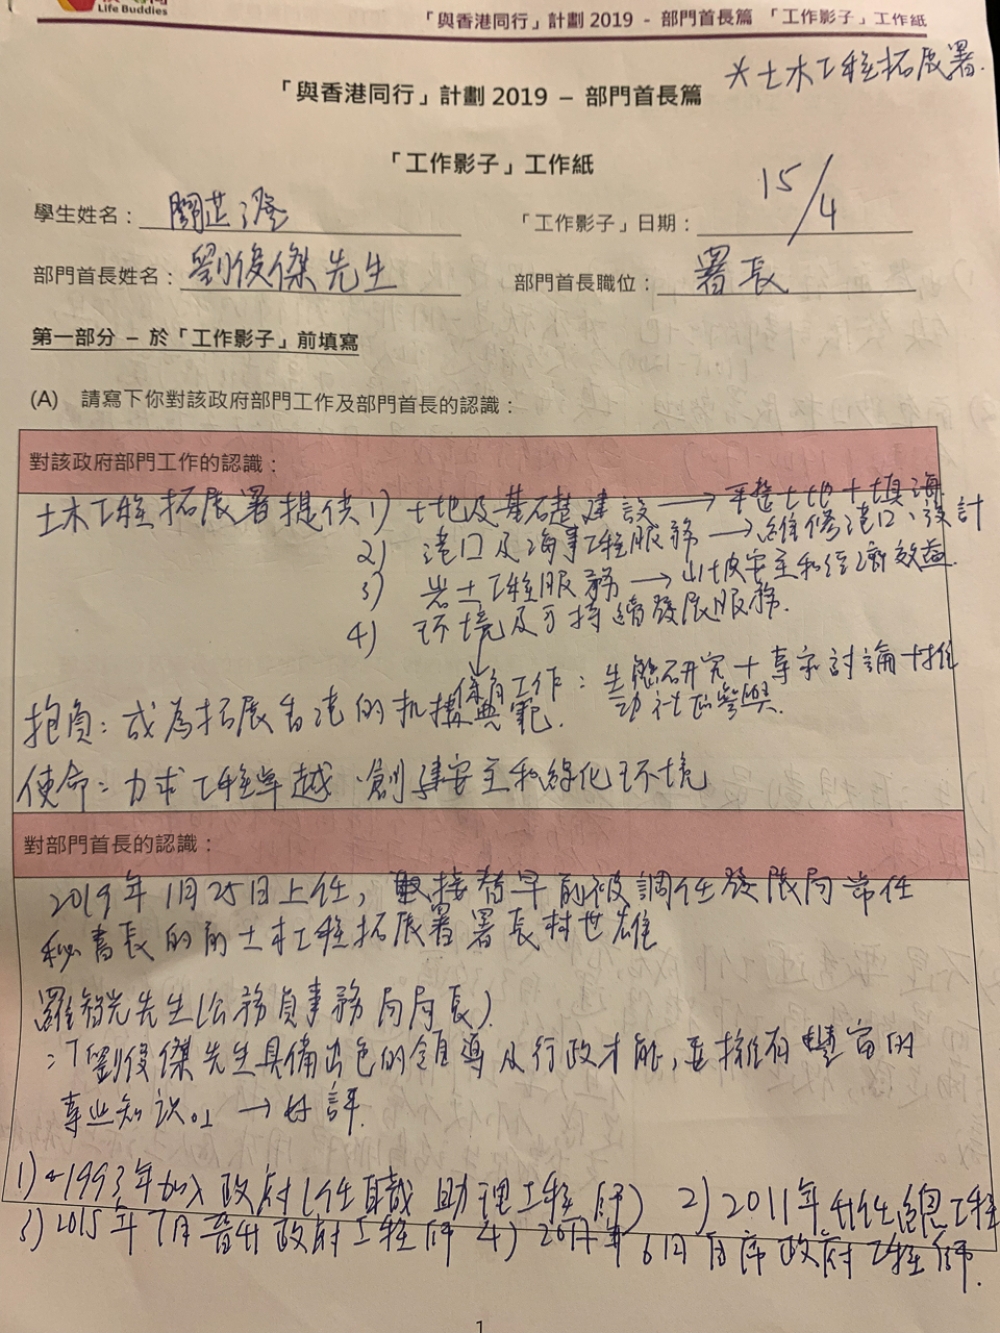 Life Buddies
「與香港同行」計劃 2019 - 部門首長篇 「工作影子」工作紙
* 土木工程拓展署.
「與香港同行」計劃 2019 – 部門首長篇
「工作影子」工作紙
學生姓名：關芷澄 「工作影子」日期：15/4
部門首長姓名：劉俊傑先生 部門首長職位：署長
第一部分 – 於「工作影子」前填寫
(A) 請寫下你對該政府部門工作及部門首長的認識：
對該政府部門工作的認識：
土木工程拓展署提供1) 土地及基礎建設 → 平整土地+填海
2) 港口及海事工程服務 → 維修港口、設計
3) 岩土工程服務 → 山坡安全和經濟效益.
4) 环境及可持續發展服務.
工作：生態研究+專家討論+推
动社区參與.
抱負：成為拓展香港的机構典範.
使命：力求工程卓越、創建安全和綠化环境
對部門首長的認識：
2019年1月25日上任，接替早前被調任發展局常任
秘書長的前土木工程拓展署署長林世雄
羅智光先生(公務員事務局局長)
：「劉俊傑先生具備出色的領導及行政才能,並擁有豐富的
專业知识。」 → 好評.
1) 1993年加入政府(任職助理工程師) 2) 2011年升任總工程
3) 2015年7月晉升政府工程師 4) 6月首席政府工程師.
1